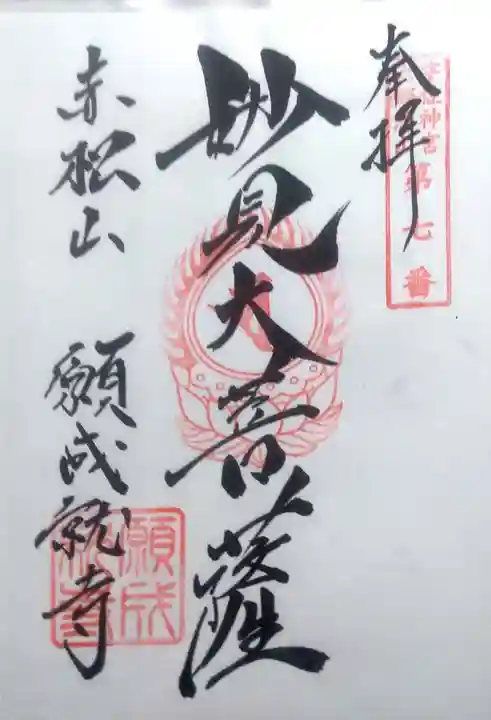 奉拝
神宮 第七番
妙見大菩薩
赤松山 願成就寺
願成
就寺